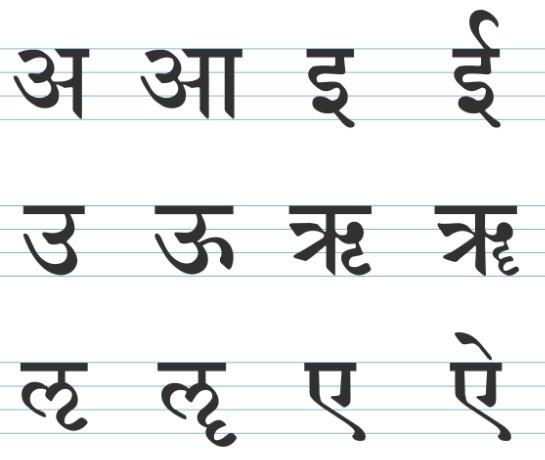 अ आ इ ई
उ ऊ ऋ ॠ
ऌ ॡ ए ऐ